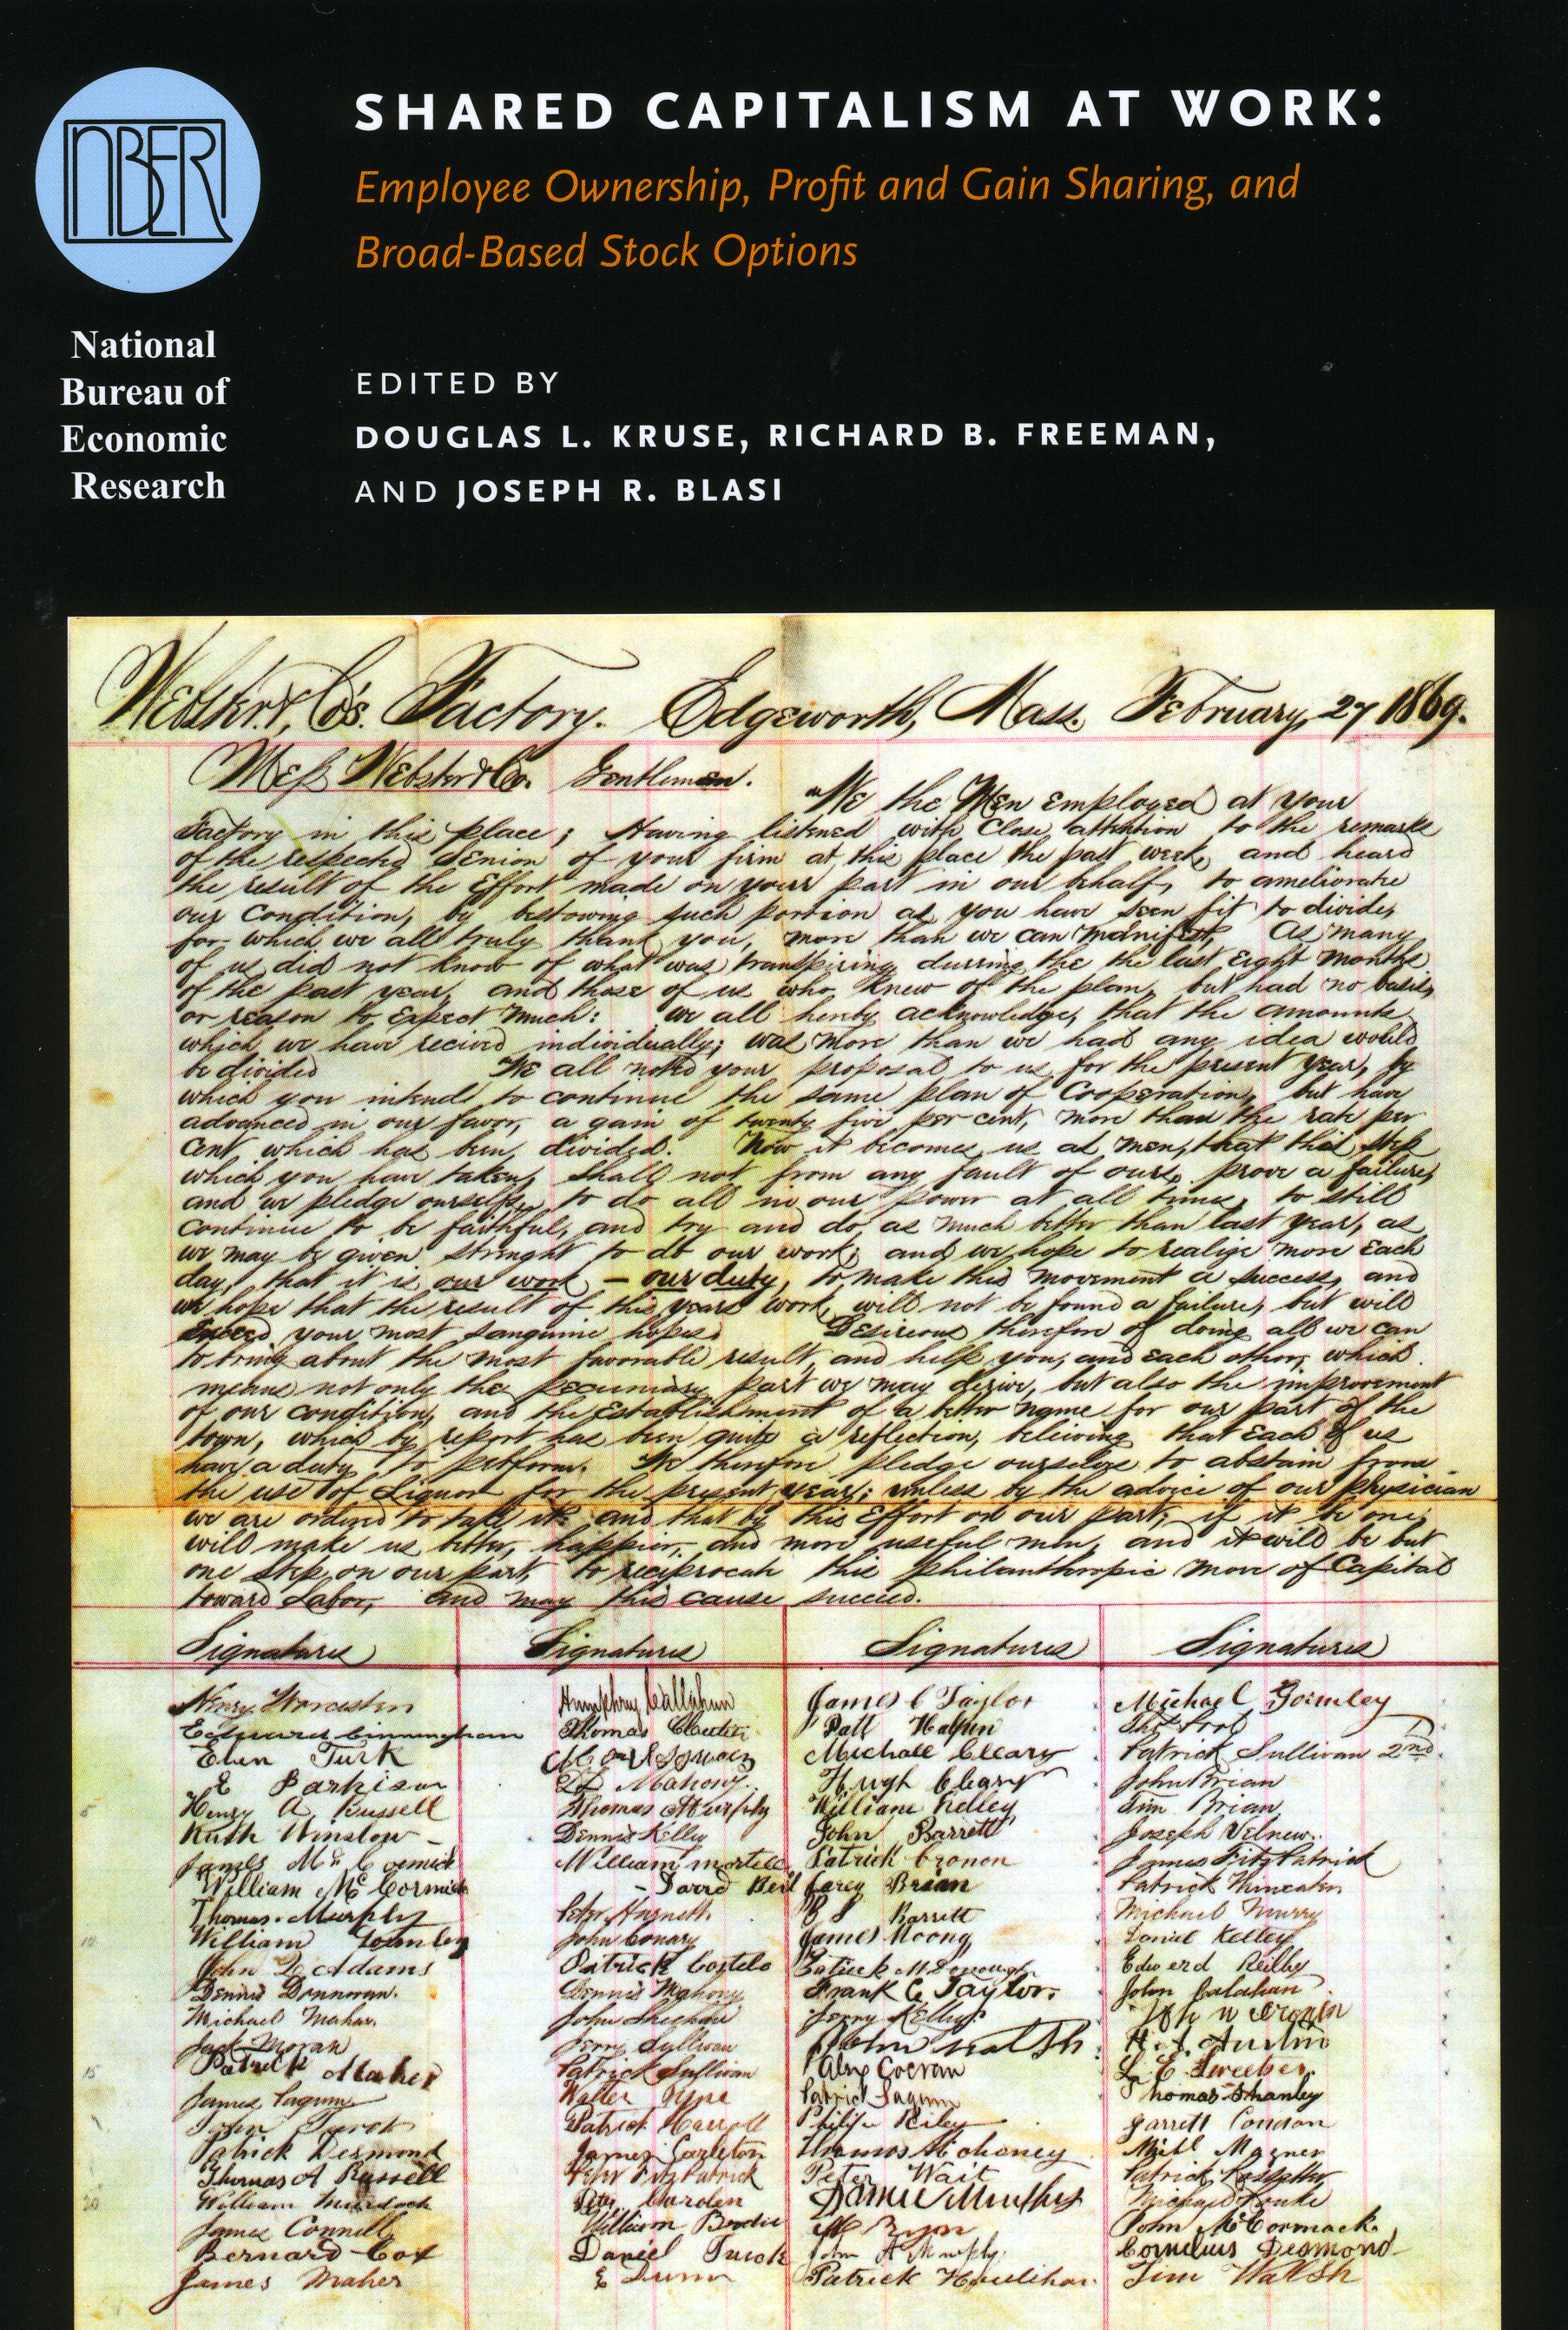 NBER
SHARED CAPITALISM AT WORK:
Employee Ownership, Profit and Gain Sharing, and
Broad-Based Stock Options
National
Bureau of
Economic
Research
EDITED BY
DOUGLAS L. KRUSE, RICHARD B. FREEMAN,
AND JOSEPH R. BLASI
Webster & Co's. Factory. Edgeworth, Mass. February, 27 1869.
Mess Webster & Co. Gentlemen. "We the Men employed at your
Factory in this place; Having listened with close attention to the remarks
of the respected Senior of your firm at this place the past week, and heard
the result of the Effort made on your part in our behalf, to ameliorate
our Condition, by bestowing such portion as you have seen fit to divide,
for which we all truly thank you, more than we can manifest, As many
of us did not know of what was transpiring durring the the last Eight months
of the past year, and those of us who knew of the plan, but had no basis,
or reason to Expect much: we all hereby acknowledge, that the amounts
which we have recived individually; was more than we had any idea would
be divided We all noted your proposal to us for the present year, by
which you intend to continue the same plan of Cooperation, but have
advanced in our favor, a gain of twenty five per cent, more than the rate per
cent, which has been, divided. Now it becomes us as men, that this step
which you have taken, shall not from any fault of ours, prove a failure,
and we pledge ourselfs, to do all in our power at all times, to still
continue to be faithful, and try and do, as much better than last year, as
we may be given strenght to do our work; and we hope to realize more Each
day, that it is our work – our duty, to make this movement a success, and
we hope that the result of this years work, will not be found a failure, but will
Exceed your most sanguine hopes. Desireous therefore of doing all we can
to bring about the most favorable result, and help you, and each other, which
means not only the pecuniary part we may derive, but also the improvement
of our condition, and the Establishment of a better name for our part of the
town, which by report has been quite a reflection, believing that Each of us
have a duty to perform. We therefore pledge ourselves to abstain from
the use of Liquor for the present year; unless by the advice of our physician
we are ordered to take it: and that by this Effort on our part, if it be one,
will make us better, happier, and more useful men, and it will be but
one step, on our part, to reciprocate this philanthropic move of Capital
toward Labor, and may this cause succeed.
Signatures Signatures Signatures Signatures
Henry Worcester Humphrey Callahan James C Taylor Michael Gormley
Edward Cunningham Thomas Patt Halpin
Eben Turk Michael Cleary Patrick Sullivan 2nd
E Parkison Mahony Hugh Cleary John Brian
5 Henry A, Russell Thomas Murphy William Kelley Tim Brian
Ruth Winslow Dennis Kelley John Barrett Joseph
James McCormick William Patrick Cronon James Fitzpatrick
William McCormick Brian Patrick
Thomas Murphy Peter Barrett Michael Murry
10 William John Conary James Daniel Kelley
John Q Adams Patrick Costelo Patrick Edwerd Reilley
Dennis Dennivan. Dennis Mahony Frank C Taylor. John Calahan
Michael Mahar. John Sheehan Jerry Kelley
Jack Moran Jerry Sullivan John H. A. Austin
15 Patrick Maher Patrick Sullivan Alex Cocran L. E.
James Walter Patrick Thomas Shanley
John Patrick Carroll Philip Riley Garrett Condon
Patrick Desmond James Carleton Thomas Mahoney Michl Magner
Thomas A Russell Peter Fitzpatrick Peter Wait Patrick
20 William Murdock Peter
James Connell William Brodie M Ryan John McCormack
Bernard Cox Daniel John A Murphy Cornelius Desmond
James Maher E Dunn Patrick Houlihan Tim Walsh